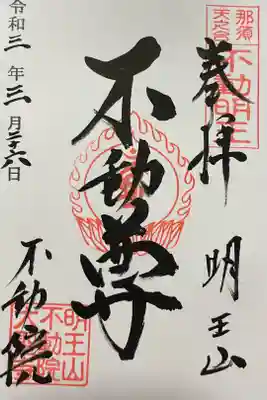 奉拝
明王山
不動尊
令和三年三月二十六日
不動院
那須
不動明王
明王山
不動院